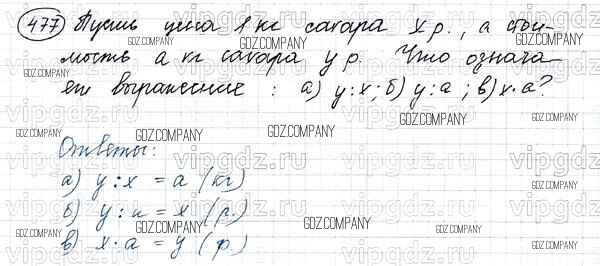 477 Пусть цена 1 кг сахара x р., а стои-
мость a кг сахара y р. Что означа-
ет выражение: а) y:x; б) y:a; в) x·a?
Ответы:
а) y:x = a (кг)
б) y:a = x (р.)
в) x·a = y (р.)
GDZ.COMPANY
vipgdz.ru